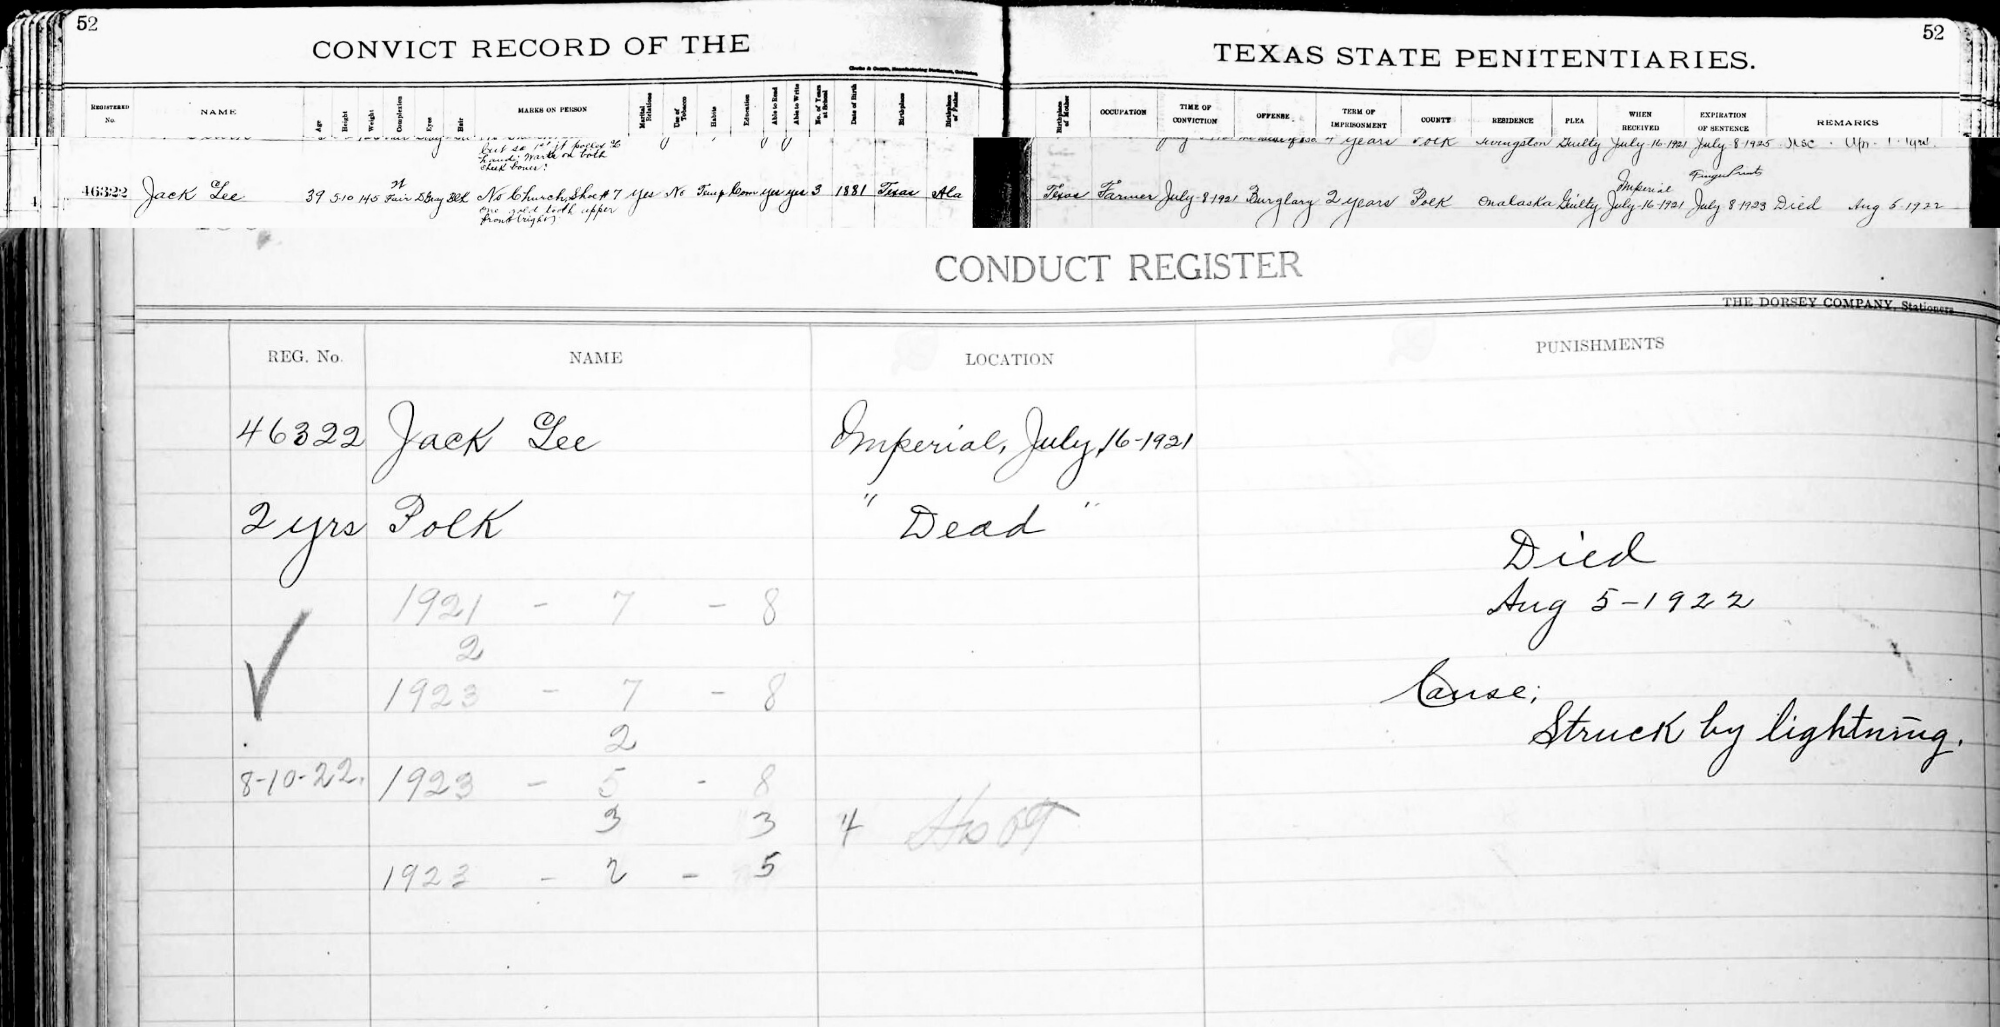 52
CONVICT RECORD OF THE
52
TEXAS STATE PENITENTIARIES.
REGISTERED No. NAME Age Height Weight Complexion Eyes Hair MARKS ON PERSON Marital Relations Use of Tobacco Habits Education Able to Read Able to Write No. of Years at School Date of Birth Birthplace Birthplace of Father Birthplace of Mother OCCUPATION TIME OF CONVICTION OFFENSE. TERM OF IMPRISONMENT COUNTY RESIDENCE PLEA WHEN RECEIVED EXPIRATION OF SENTENCE REMARKS
hand; marks on both
cheek bones;
years Polk Livingston Guilty July-16-1921 July-8-1925
Finger Prints
Imperial
46322 Jack Lee 39 5-10 145 Fair Blk No Church, Shoe # 7 yes No Temp Com yes yes 3 1881 Texas Ala Texas Farmer July-8-1921 Burglary 2 years Polk Onalaska Guilty July-16-1921 July 8-1923 Died Aug 5-1922
one gold tooth upper
front (right)
CONDUCT REGISTER
THE DORSEY COMPANY, Stationers
REG. No. NAME LOCATION PUNISHMENTS
46322 Jack Lee Imperial, July, 16-1921
2 yrs Polk " Dead "
Died
1921 - 7 - 8
Aug 5-1922
2
1923 - 7 - 8
Cause;
2
Struck by lightning.
8-10-22. 1923 - 5 - 8
3 3 4
1923 - 2 - 5